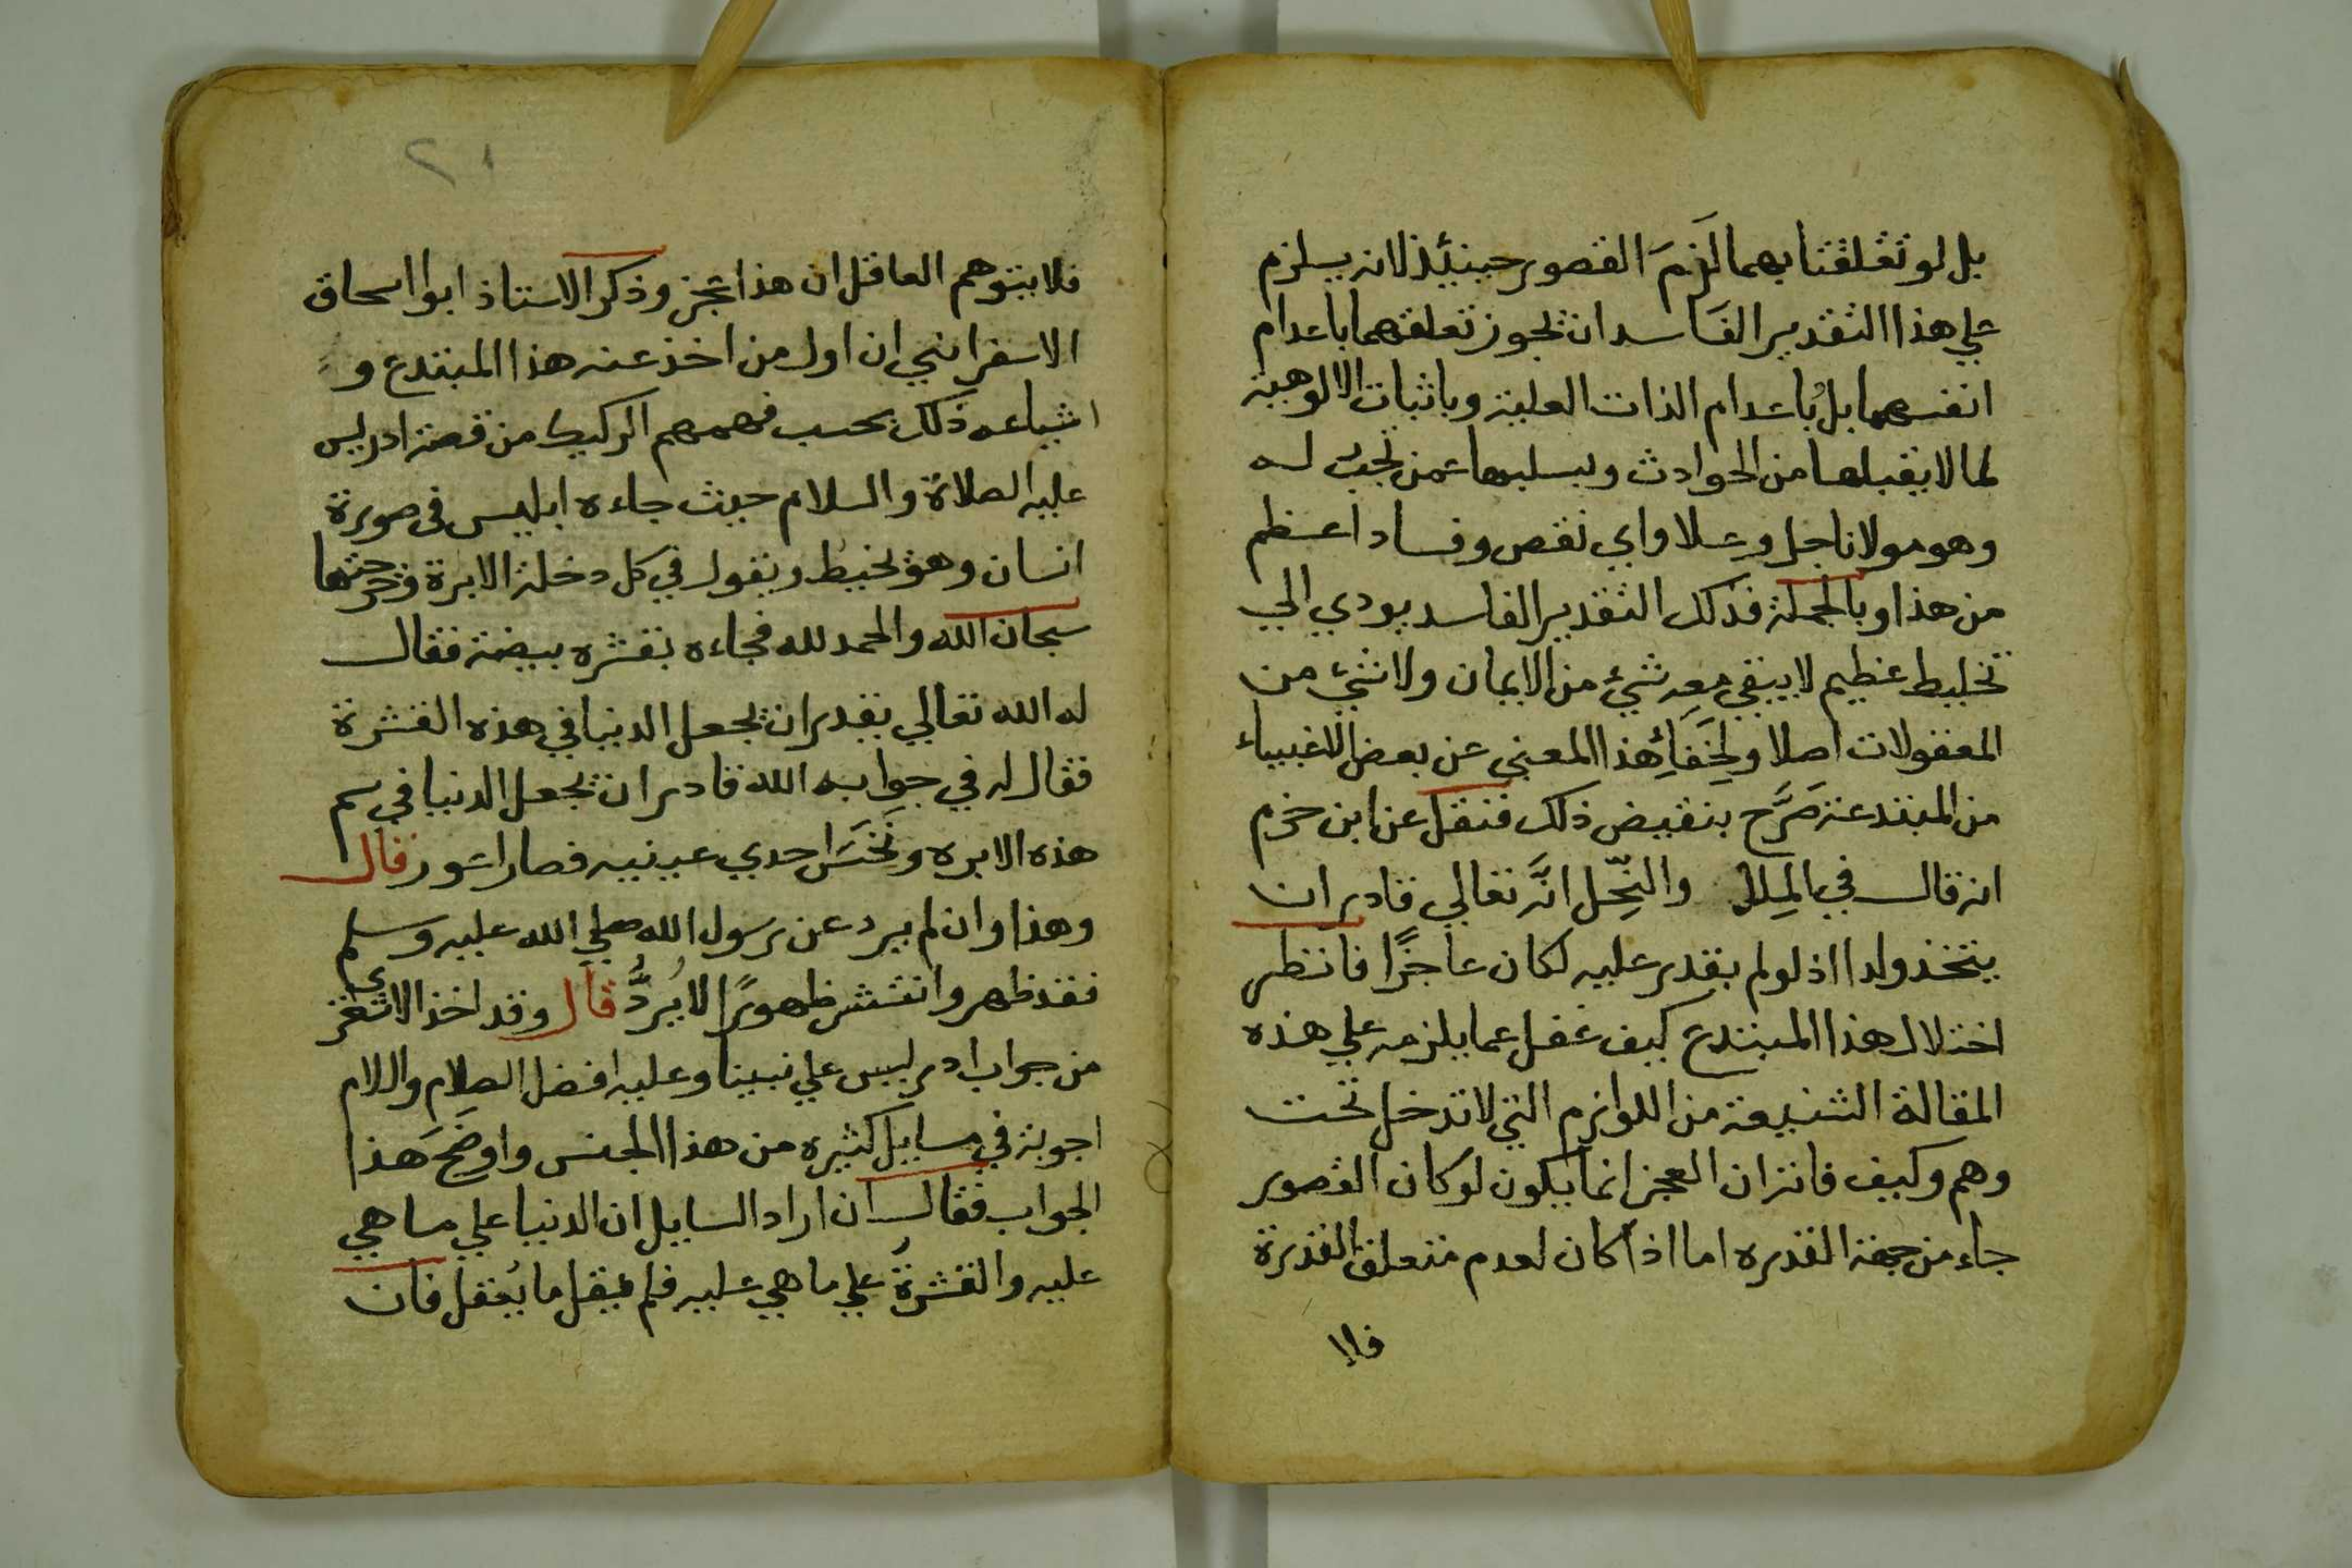 بل لو تعلقتا بهما لَزِمَ القصور حينيٍذ لانه يسلزم
علي هذا التقدير الفاسد ان يجوز تعلقهما باعدام
انفسهما بل باعدام الذات العلية وباثبات الالوهية
لما لا يقبلها من الحوادث ويسلبها عمن تجب له
وهو مولانا جل وعلا واي نقص وفساد اعظم
من هذا وبالجملة فذلك التقدير الفاسد يودي الي
تخليط عظيم لا يبقي معه شيء من الايمان ولا شيء من
المعقولات اصلا ولِخَفَاِء هذا المعني عن بعض الاغبياء
من المبتدعة صَرَّح بنقيض ذلك فنقل عن ابن حزم
انه قال في المِلَل والنِّحِل انَّه تعالي قادر ان
يتخذ ولدا اذ لو لم يقدر عليه لكان عاجزًا فانظر
اختلال هذا المبتدع كيف غفل عما يلزمه علي هذه
المقالة الشنيعة من اللوازم التي لا تدخل تحت
وهم وكيف فاته ان العجز انما يكون لو كان القصور
جاء من جهة القدره اما اذا كان لعدم متعلق القدرة
فلا
٢١
فلا يتوهم العاقل ان هذا عجز وذكر الاستاذ ابوا اسحاق
الاسفرايني ان اول من اخذ عنه هذا المبتدع و
اشياعه ذلك بحسب فهمهم الركيك من قصة ادريس
عليه الصلاة والسلام حيث جاءه ابليس في صورة
انسان وهو يخيط ويقول في كل دخلة الابرة وخرجتها
سبحان الله والحمد لله فجاءه بقشره بيضة فقال
له الله تعالي يقدر ان يجعل الدنيا في هذه القشرة
فقال له في جوابه الله قادر ان يجعل الدنيا في سم
هذه الابره ونَخَسَ احدي عينيه فصار اعور قال
وهذا وان لم يرد عن رسول الله صلي الله عليه وسلم
فقد ظهر وانتشر ظهورًا لا يُرَدُّ قال وقد اخذ الاشعري
من جواب ادريس علي نبينا وعليه افضل الصلام والسلام
اجوبة في مسايل كثيره من هذا الجنس واوضَحَ هذا
الجواب فقال ان اراد السايل ان الدنيا علي ما هي
عليه والقشرةُ علي ما هي عليه فلم يقل ما يُعقل فان